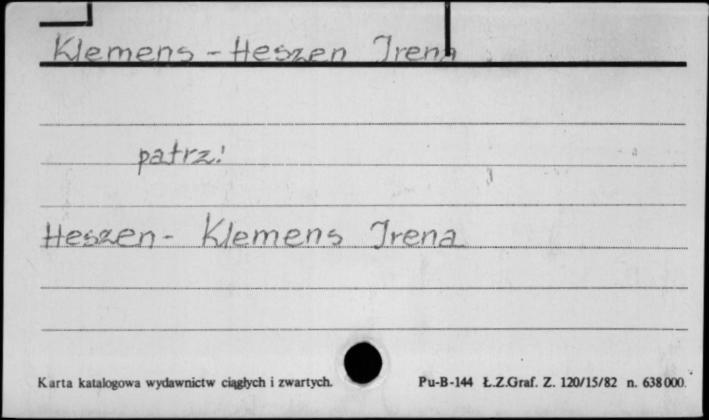 Klemens - Heszen Irena
patrz:
Heszen - Klemens Irena
Karta katalogowa wydawnictw ciągłych i zwartych.
Pu-B-144 Ł.Z.Graf. Z. 120/15/82 n. 638000.